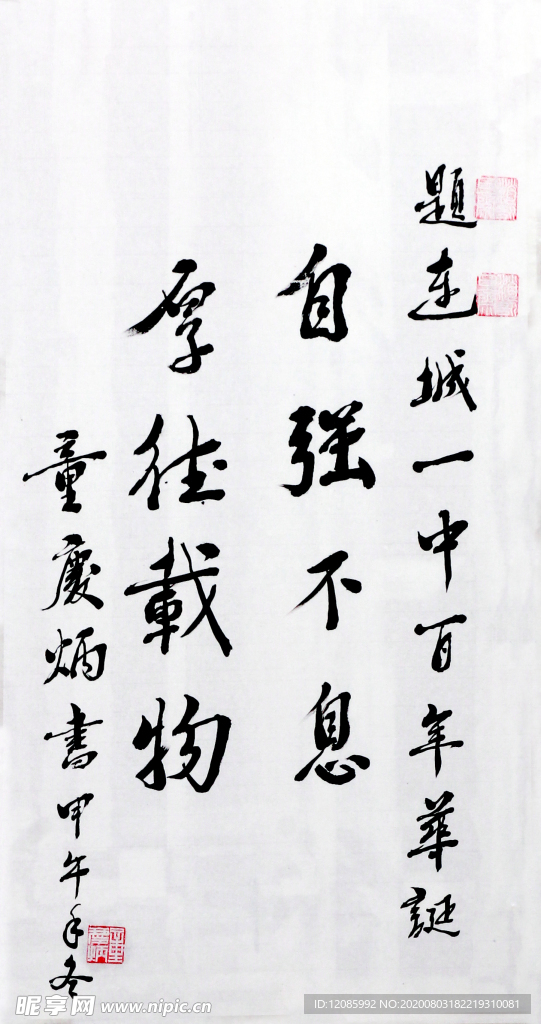 題連城一中百年華誕
自強不息
厚德載物
童慶炳書甲午年冬
昵享网 www.nipic.cn
ID:12085992 NO:20200803182219310081